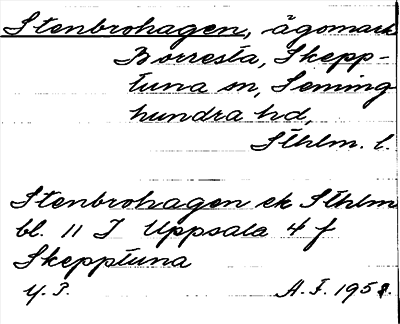 Stenbrohagen, ägomark
Borresta, Skepp-
tuna sn, Seming
hundra hd,
Sthlm. l.
Stenbrohagen ek Sthlm
bl. 11 I Uppsala 4 f
Skepptuna
A.F. 1958